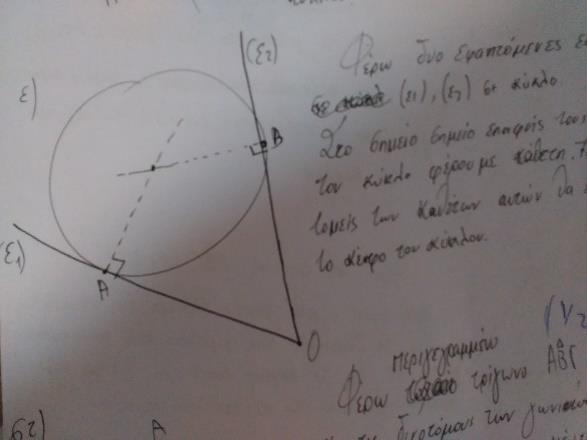 (ε2)
ε)
Φέρω δυο εφαπτόμενες
(ε1), (ε2) στ κύκλο.
Στο σημείο σημείο επαφής τους
B
τον κύκλο φέρουμε κάθετη.
τομείς των καθέτων αυτών θα
(ε1)
το κέντρο του κύκλου.
A
O
(1/2
περιγεγραμμένο
Φέρω τρίγωνο ΑΒΓ
διχοτόμους των γωνιών
A